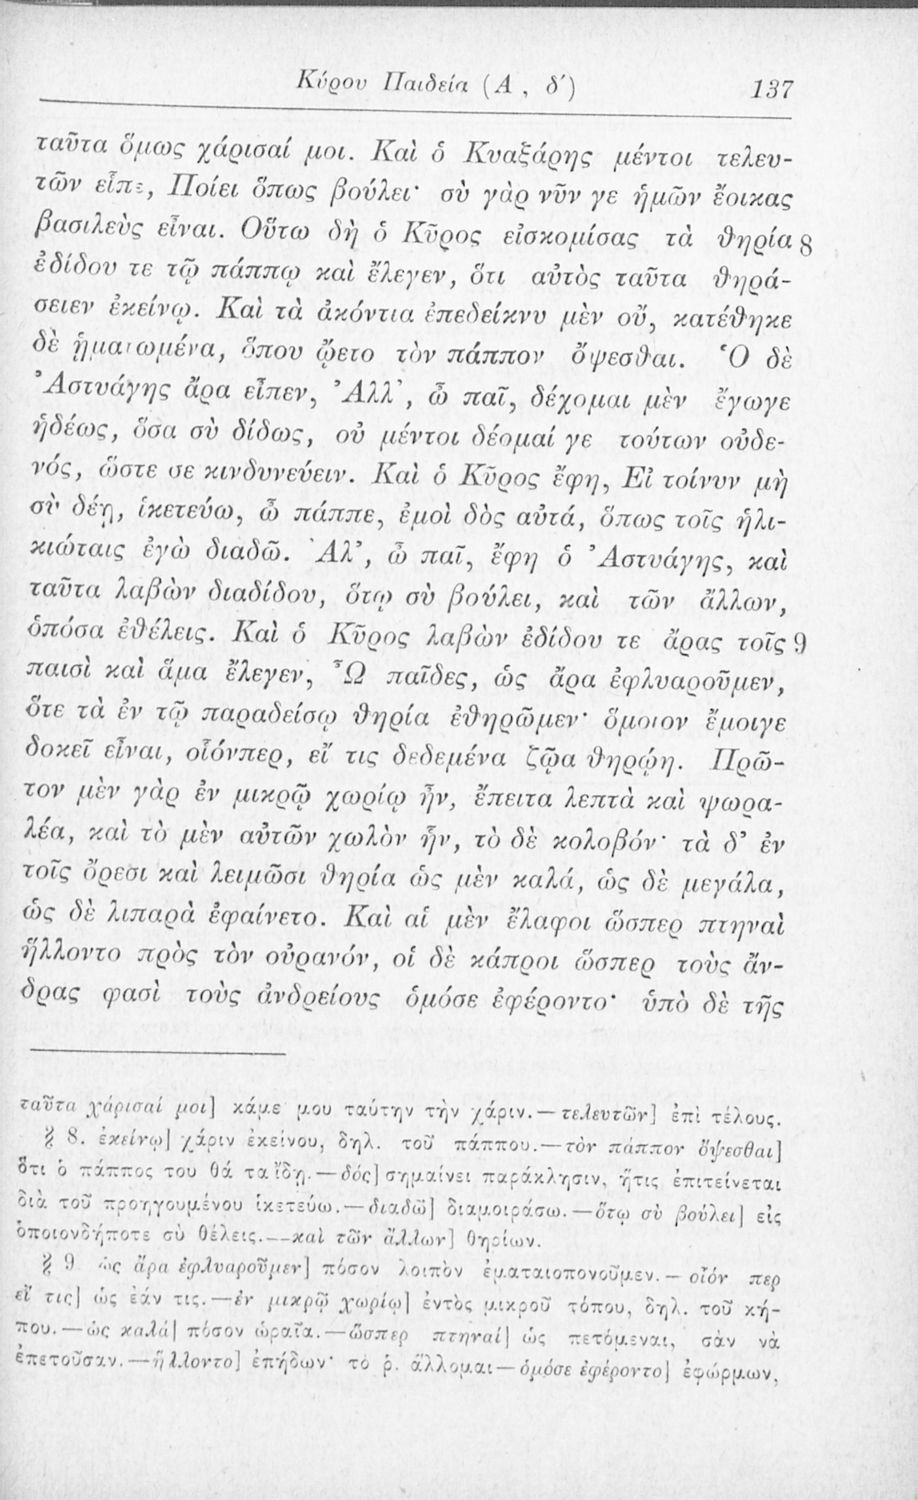 Κύρου Παιδεία (Α , δ΄) 137
ταῦτα ὅμως χάρισαί μοι. Καὶ ὁ Κυαξάρης μέντοι τελευ-
τῶν εἶπε, Ποίει ὅπως βούλει· σὺ γὰρ νῦν γε ἡμῶν ἔοικας
βασιλεὺς εἶναι. Οὕτω δὴ ὁ Κῦρος εἰσκομίσας τὰ θηρία 8
ἐδίδου τε τῷ πάππῳ καὶ ἔλεγεν, ὅτι αὐτὸς ταῦτα θηρά-
σειεν ἐκείνῳ. Καὶ τὰ ἀκόντια ἐπεδείκνυ μὲν οὔ, κατέθηκε
δὲ ᾑματωμένα, ὅπου ᾤετο τὸν πάππον ὄψεσθαι. Ὁ δὲ
Ἀστυάγης ἄρα εἶπεν, Ἀλλ᾽, ὦ παῖ, δέχομαι μὲν ἔγωγε
ἡδέως, ὅσα σὺ δίδως, οὐ μέντοι δέομαί γε τούτων οὐδε-
νός, ὥστε σε κινδυνεύειν. Καὶ ὁ Κῦρος ἔφη, Εἰ τοίνυν μὴ
σὺ δέῃ, ἱκετεύω, ὦ πάππε, ἐμοὶ δὸς αὐτά, ὅπως τοῖς ἡλι-
κιώταις ἐγὼ διαδῶ. Ἀλ᾽, ὦ παῖ, ἔφη ὁ Ἀστυάγης, καὶ
ταῦτα λαβὼν διαδίδου, ὅτῳ σὺ βούλει, καὶ τῶν ἄλλων,
ὁπόσα ἐθέλεις. Καὶ ὁ Κῦρος λαβὼν ἐδίδου τε ἄρας τοῖς 9
παισὶ καὶ ἅμα ἔλεγεν, Ὦ παῖδες, ὡς ἄρα ἐφλυαροῦμεν,
ὅτε τὰ ἐν τῷ παραδείσῳ θηρία ἐθηρῶμεν· ὅμοιον ἔμοιγε
δοκεῖ εἶναι, οἷόνπερ, εἴ τις δεδεμένα ζῷα θηρῴη. Πρῶ-
τον μὲν γὰρ ἐν μικρῷ χωρίῳ ἦν, ἔπειτα λεπτὰ καὶ ψωρα-
λέα, καὶ τὸ μὲν αὐτῶν χωλὸν ἦν, τὸ δὲ κολοβόν· τὰ δ᾽ ἐν
τοῖς ὄρεσι καὶ λειμῶσι θηρία ὡς μὲν καλά, ὡς δὲ μεγάλα,
ὡς δὲ λιπαρὰ ἐφαίνετο. Καὶ αἱ μὲν ἔλαφοι ὥσπερ πτηναὶ
ἥλλοντο πρὸς τὸν οὐρανόν, οἱ δὲ κάπροι ὥσπερ τοὺς ἄν-
δρας φασὶ τοὺς ἀνδρείους ὁμόσε ἐφέροντο· ὑπὸ δὲ τῆς
ταῦτα χάρισαί μοι] κάμε μου ταύτην τὴν χάριν.—τελευτῶν] ἐπὶ τέλους.
§ 8. ἐκείνῳ] χάριν ἐκείνου, δηλ. τοῦ πάππου.—τὸν πάππον ὄψεσθαι]
ὅτι ὁ πάππος του θὰ τα ἴδῃ.—δός] σημαίνει παράκλησιν, ἥτις ἐπιτείνεται
διὰ τοῦ προηγουμένου ἱκετεύω.—διαδῶ] διαμοιράσω.—ὅτῳ σὺ βούλει] εἰς
ὁποιονδήποτε σὺ θέλεις.—καὶ τῶν ἄλλων] θηρίων.
§ 9 ὡς ἄρα ἐφλυαροῦμεν] πόσον λοιπὸν ἐματαιοπονοῦμεν.—οἷόν περ
εἴ τις] ὡς ἐάν τις.—ἐν μικρῷ χωρίῳ] ἐντὸς μικροῦ τόπου, δηλ. τοῦ κή-
που.—ὡς καλά] πόσον ὡραῖα.—ὥσπερ πτηναί] ὡς πετόμεναι, σὰν νὰ
ἐπετοῦσαν.—ἥλλοντο] ἐπήδων· τὸ ῥ. ἅλλομαι—ὁμόσε ἐφέροντο] ἐφώρμων,